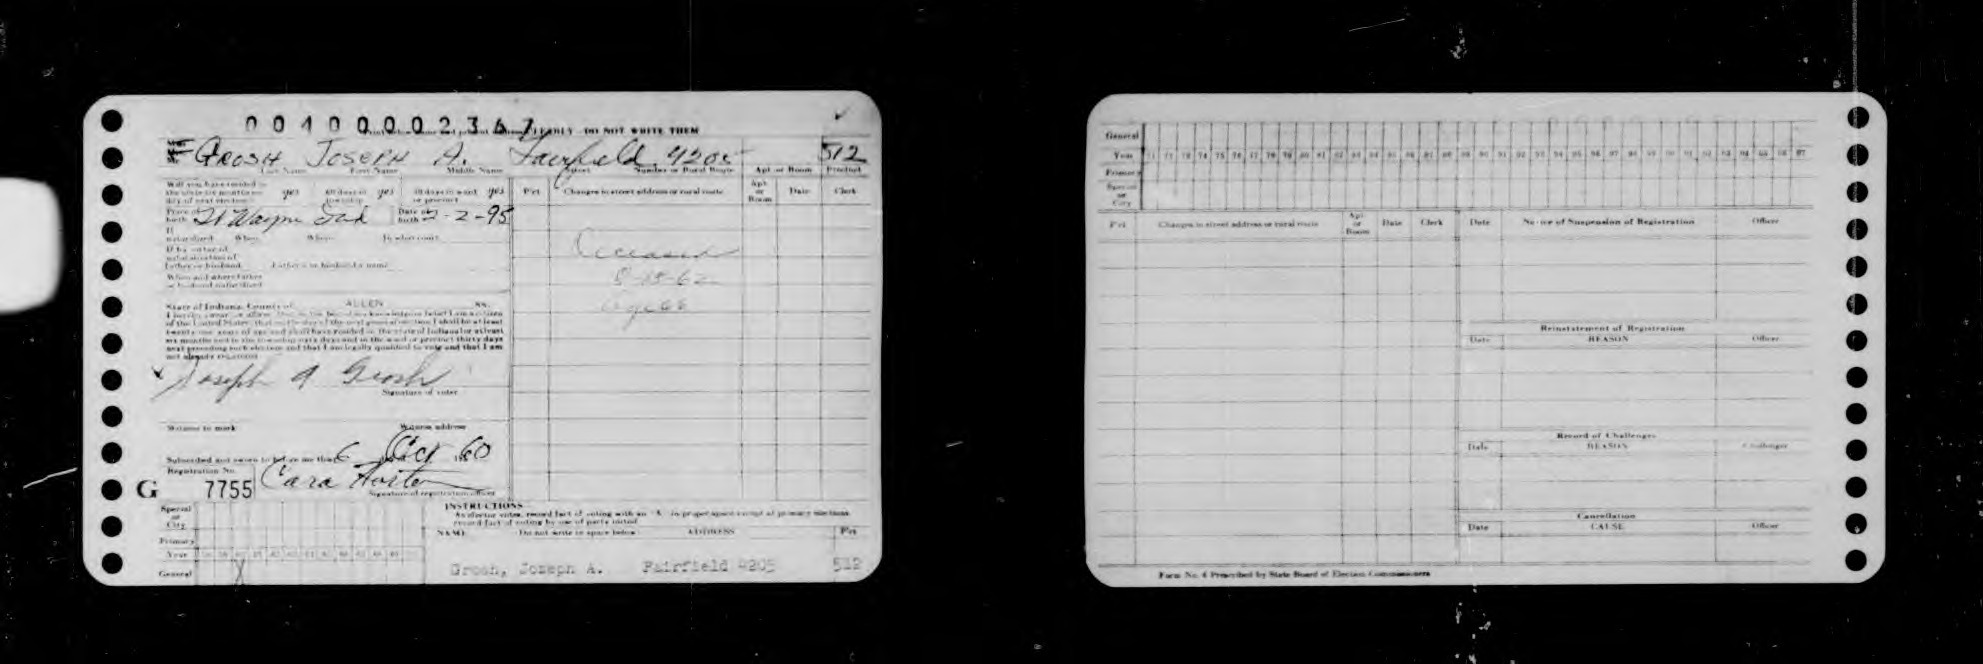 00400002367
PLEASE PRINT CLEARLY DO NOT WRITE THEM
GROSH JOSEPH A. Fairfield 4205 512
Last Name First Name Middle Name Street Number or Rural Route Apt. or Room Precinct
Will you have resided in the state six months on day of next election? yes 60 days in township yes 30 days in ward or precinct yes
Pct Changes in street address or rural route Apt. or Room Date Clerk
Place of birth Ft Wayne Ind Date of birth -2-95
If naturalized When Where In what court
If by virtue of naturalization of father or husband Father's or husband's name
When and where father or husband naturalized
Deceased
8-28-62
State of Indiana, County of ALLEN ss.
I hereby swear or affirm that to the best of my knowledge or belief I am a citizen
of the United States, that on the day of the next general election I shall be at least
twenty-one years of age and shall have resided in the state of Indiana for at least
six months and in the township sixty days and in the ward or precinct thirty days
next preceding such election and that I am legally qualified to vote and that I am
not already registered
Joseph A Grosh
Signature of voter
Witness to mark Witness address
Subscribed and sworn to before me this 6 Oct 1960
Registration No. Cara Horten
G 7755
Signature of registration officer
INSTRUCTIONS
As elector votes, record fact of voting with an "X" in proper space except at primary elections
record fact of voting by use of party initial
Special or City
Primary
Year
General X
NAME Do not write in space below ADDRESS Pct
Grosh, Joseph A. Fairfield 4205 512
General
Year 71 72 73 74 75 76 77 78 79 80 81 82 83 84 85 86 87 88 89 90 91 92 93 94 95 96 97
Primary
Special or City
Pct Changes in street address or rural route Apt. or Room Date Clerk
Date Notice of Suspension of Registration Officer
Reinstatement of Registration
Date REASON Officer
Record of Challenges
Date REASON Challenger
Cancellation
Date CAUSE Officer
Form No. 6 Prescribed by State Board of Election Commissioners